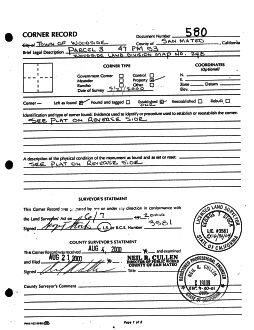 CORNER RECORD
Document Number 580
City of TOWN OF WOODSIDE County of SAN MATEO, California
Brief Legal Description PARCEL 3 47 PM 53
WOODSIDE LAND DIVISION MAP NO. 
CORNER TYPE
COORDINATES
(Optional)
Government Corner Control N.
Meander Property E.
Rancho Other Zone
Date of Survey Elev.
Corner — Left as found Found and tagged Established Reestablished Rebuilt
Identification and type of corner found: Evidence used to identify or procedure used to establish or reestablish the corner:
SEE PLAT ON REVERSE SIDE
A description of the physical condition of the monument as found and as set or reset:
SEE PLAT ON REVERSE SIDE
SURVEYOR'S STATEMENT
This Corner Record was prepared by me or under my direction in conformance with
the Land Surveyors' Act on 6/7
Signed L.S. or R.C.E. Number 3981
COUNTY SURVEYOR'S STATEMENT
This Corner Record was received and examined
and filed AUG 21 2000
NEIL R. CULLEN
DIRECTOR OF PUBLIC WORKS
COUNTY OF SAN MATEO
County Surveyor's Comment
Page 1 of 2